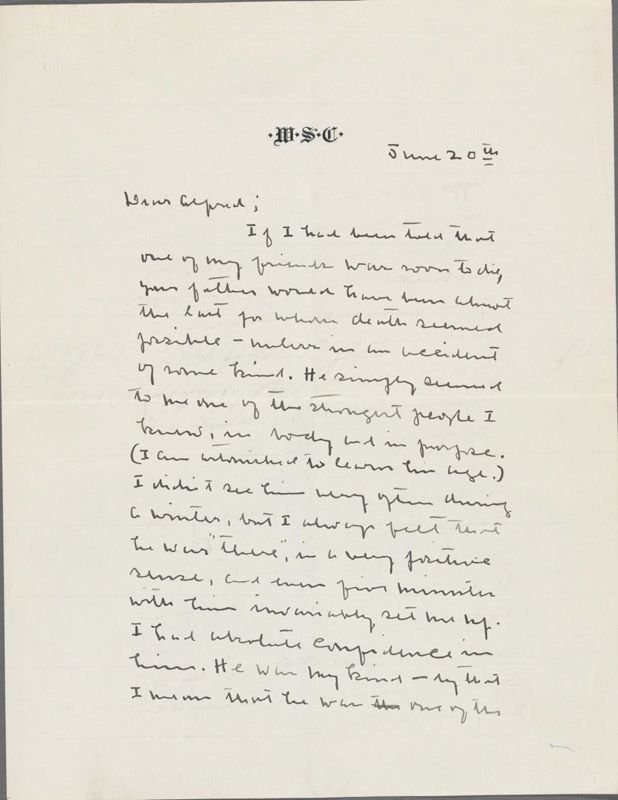 ·W·S·C·
June 20th
Dear Alfred;
If I had been told that
one of my friends was soon to die,
your father would have been almost
the last for whom death seemed
possible – unless in an accident
of some kind. He simply seemed
to me one of the strongest people I
knew, in body and in purpose.
(I am astonished to learn his age.)
I didn't see him very often during
a winter, but I always felt that
he was "there", in a very positive
sense, and even five minutes
with him invariably set me up.
I had absolute confidence in
him. He was my kind – by that
I mean that he was the one of the